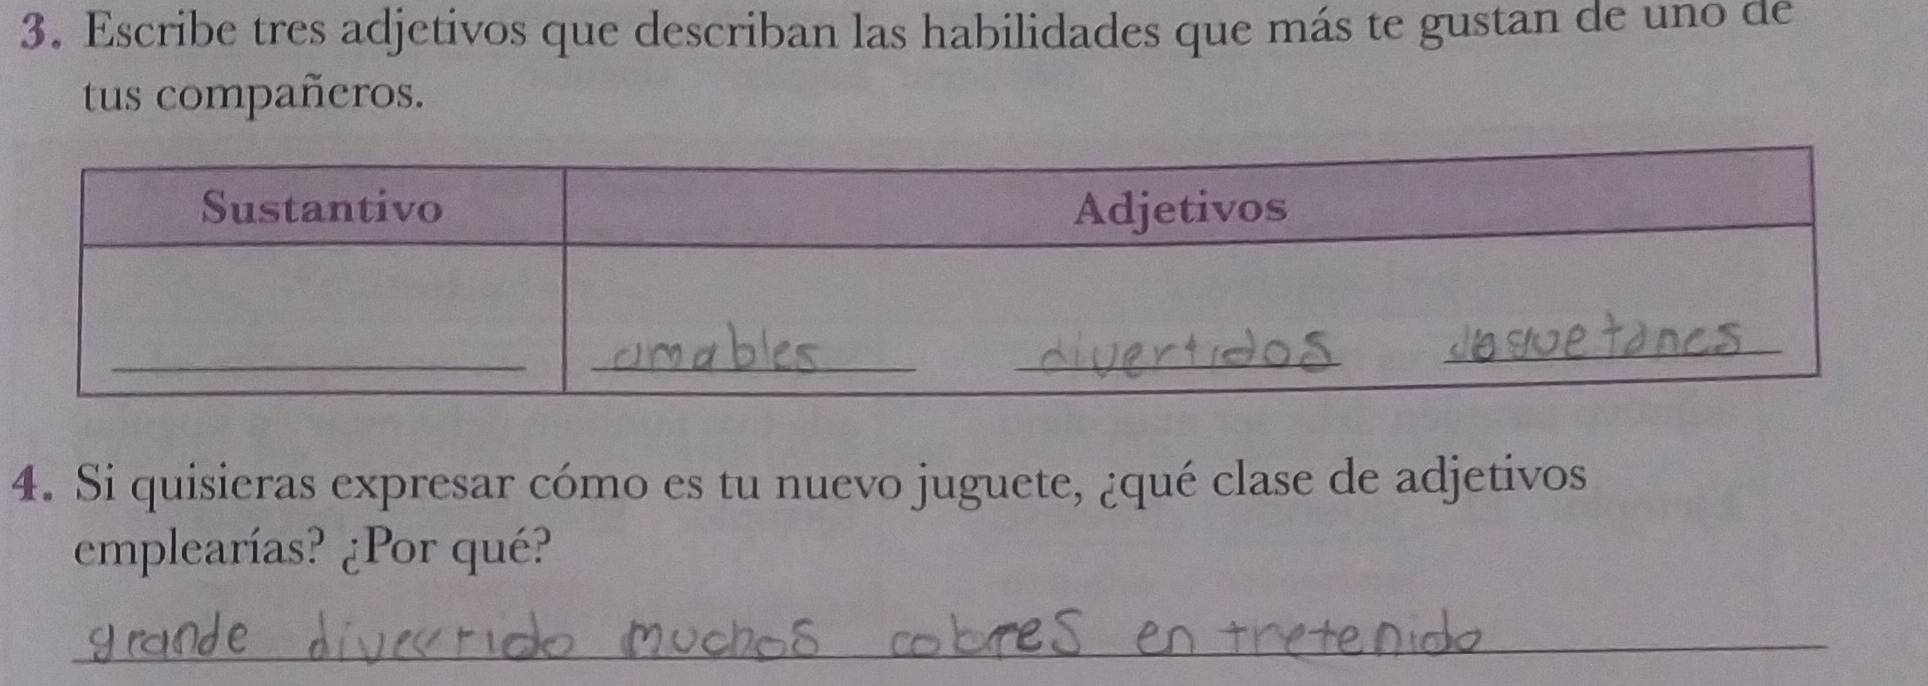 3. Escribe tres adjetivos que describan las habilidades que más te gustan de uno de
tus compañeros.
Sustantivo Adjetivos
amables divertidos
4. Si quisieras expresar cómo es tu nuevo juguete, ¿qué clase de adjetivos
emplearías? ¿Por qué?
grande muchos entretenido